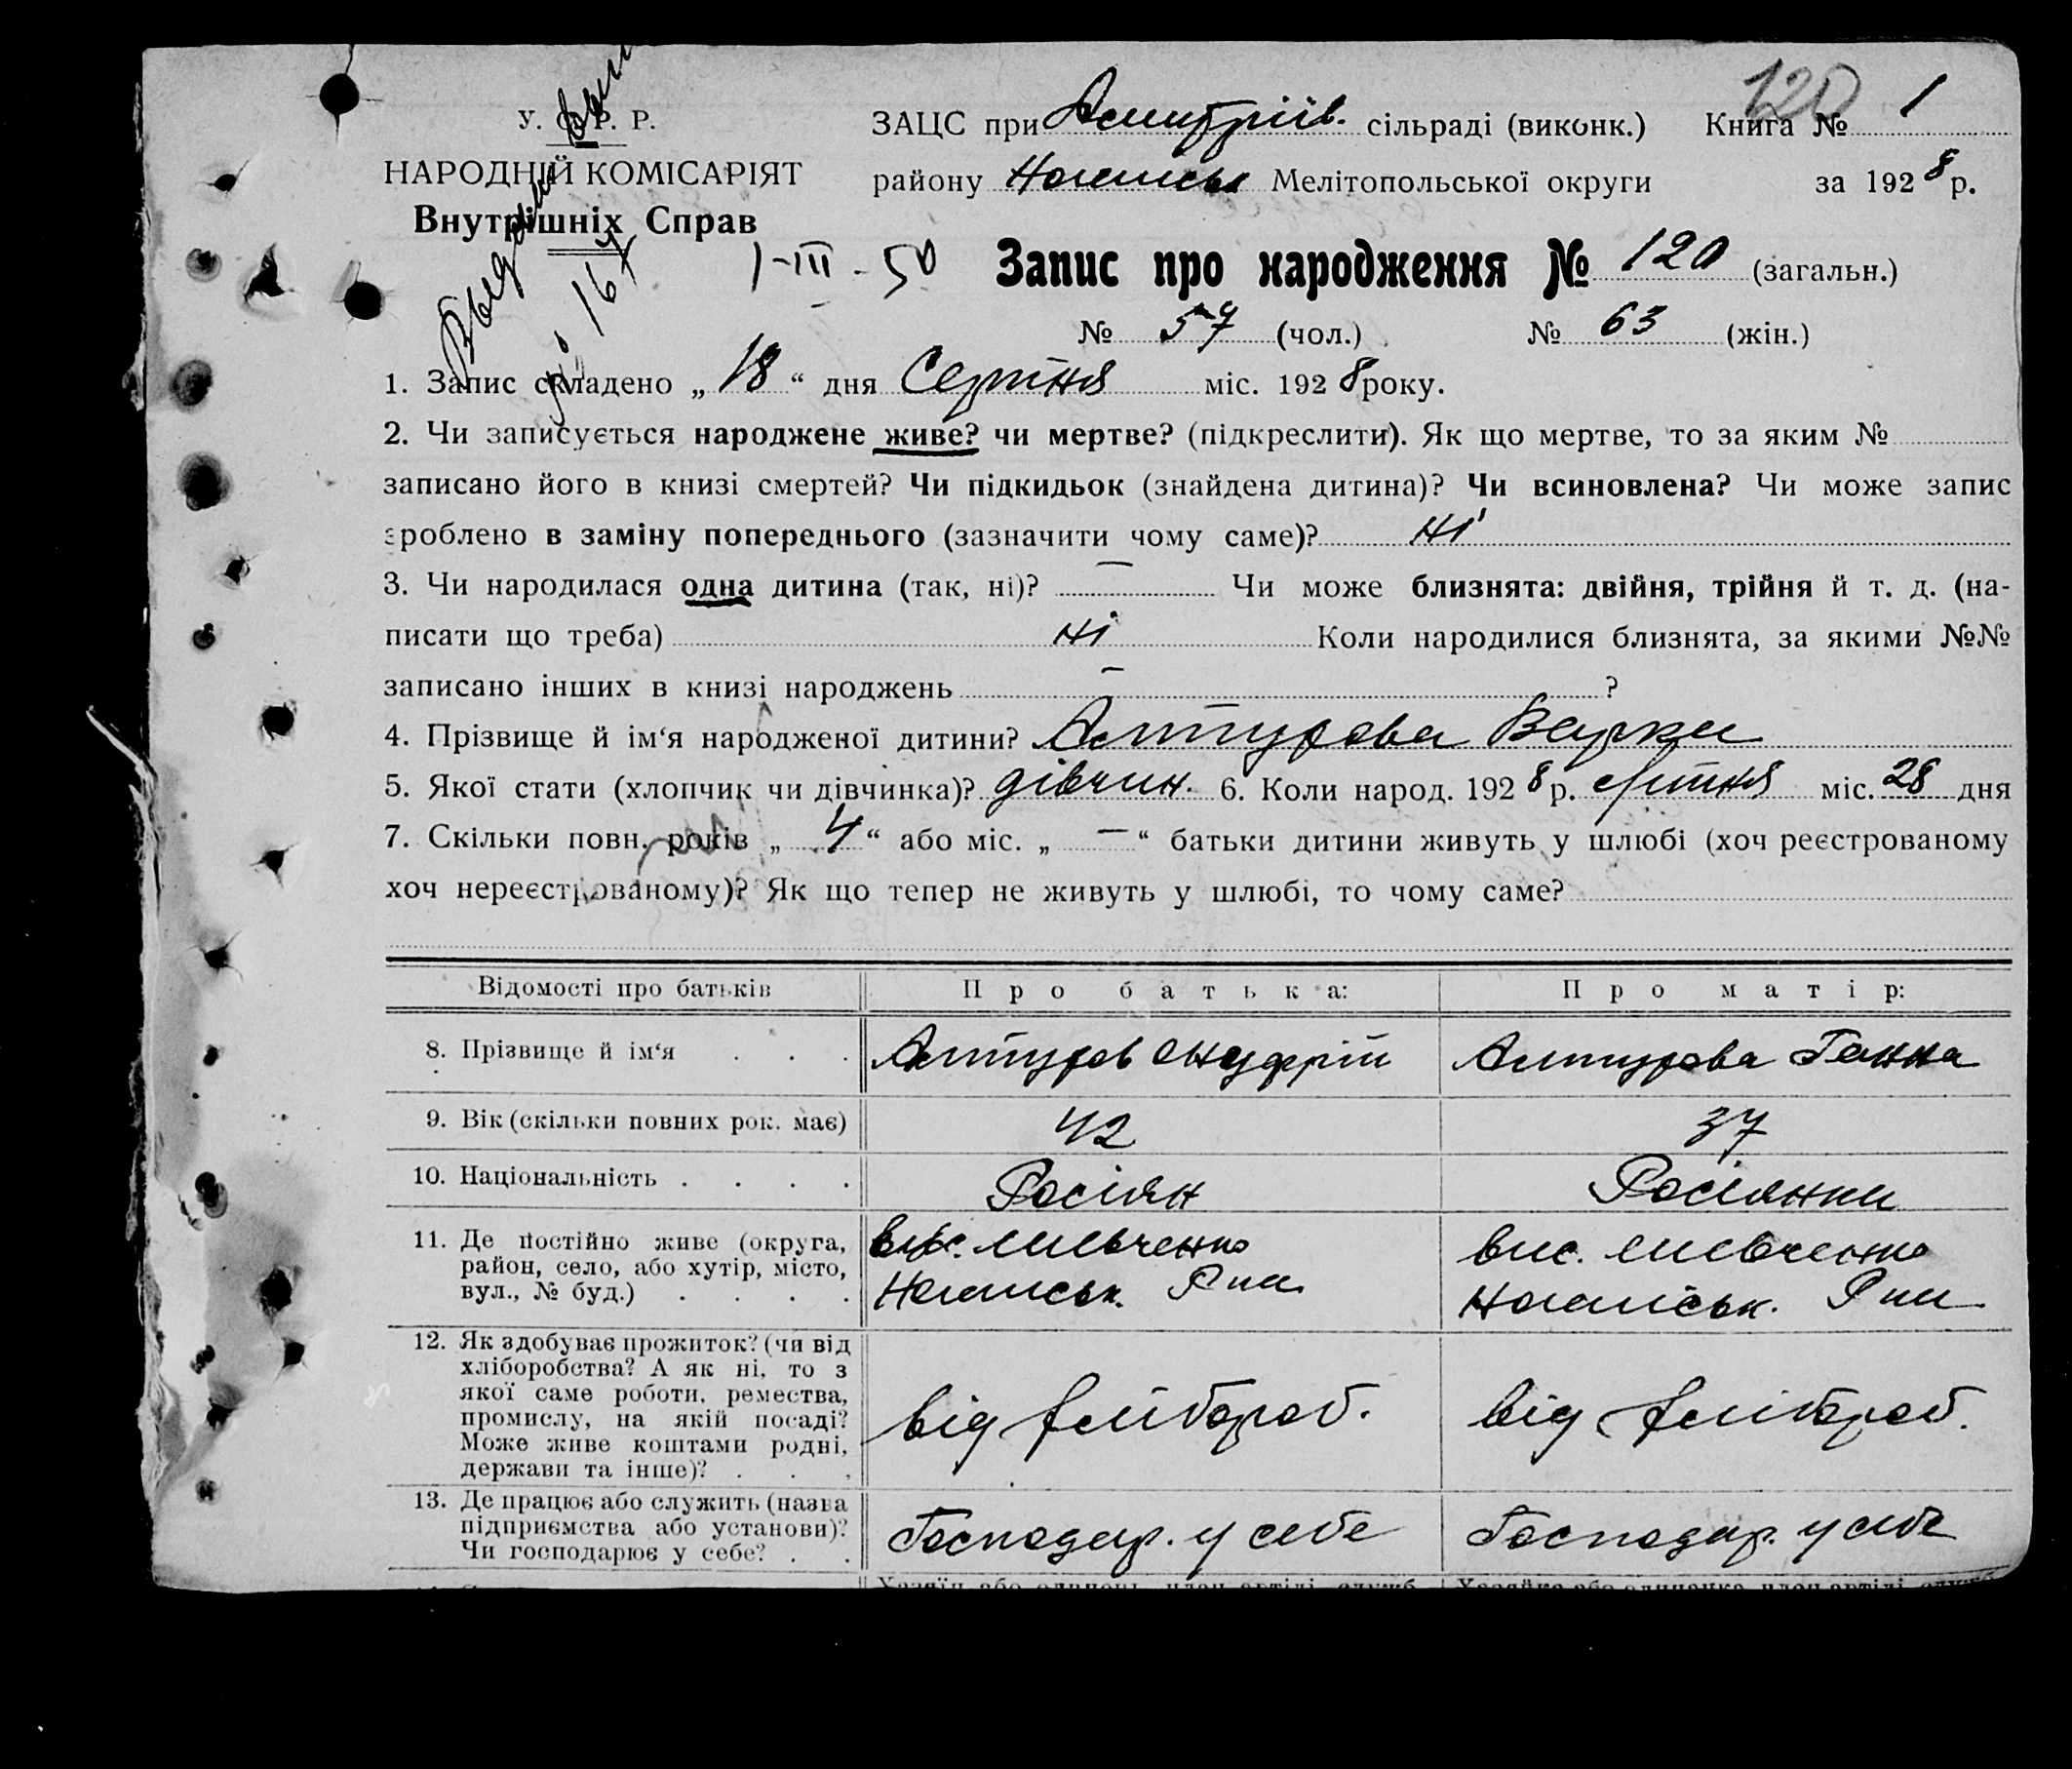 У. С. Р. Р.
НАРОДНІЙ КОМІСАРІЯТ
Внутрішніх Справ
1-III-50
120
ЗАЦС при Дмитріїв. сільраді (виконк.) Книга № 1
району Ногайськ Мелітопольської округи за 1928 р.
Запис про народження № 120 (загальн.)
№ 57 (чол.) № 63 (жін.)
1. Запис складено „18“ дня Серпня міс. 1928 року.
2. Чи записується народжене живе? чи мертве? (підкреслити). Як що мертве, то за яким №
записано його в книзі смертей? Чи підкидьок (знайдена дитина)? Чи всиновлена? Чи може запис
зроблено в заміну попереднього (зазначити чому саме)? ні
3. Чи народилася одна дитина (так, ні)? — Чи може близнята: двійня, трійня й т. д. (на-
писати що треба) ні Коли народилися близнята, за якими №№
записано інших в книзі народжень — ?
4. Прізвище й ім‘я народженої дитини? Алтурова Варка
5. Якої стати (хлопчик чи дівчинка)? дівчин. 6. Коли народ. 1928 р. міс. 28 дня
7. Скільки повн. років „4“ або міс. „—“ батьки дитини живуть у шлюбі (хоч реєстрованому
хоч нереєстрованому)? Як що тепер не живуть у шлюбі, то чому саме?
Відомості про батьків Про батька: Про матір:
8. Прізвище й ім‘я . . . Алтуров Онуфрій Алтурова Ганна
9. Вік (скільки повних рок. має) 42 37
10. Національність . . . . Росіян Росіянка
11. Де постійно живе (округа,
район, село, або хутір, місто,
вул., № буд.) . . . .
вис. Шевченко
Ногайськ. Р на
вис. Шевченко
Ногайськ. Р на
12. Як здобуває прожиток? (чи від
хліборобства? А як ні, то з
якої саме роботи, ремества,
промислу, на якій посаді?
Може живе коштами родні,
держави та інше)? . . .
від хлібороб.
від хлібороб.
13. Де працює або служить (назва
підприємства або установи)?
Чи господарює у себе? . .
Господар. у себе
Господар. у себе